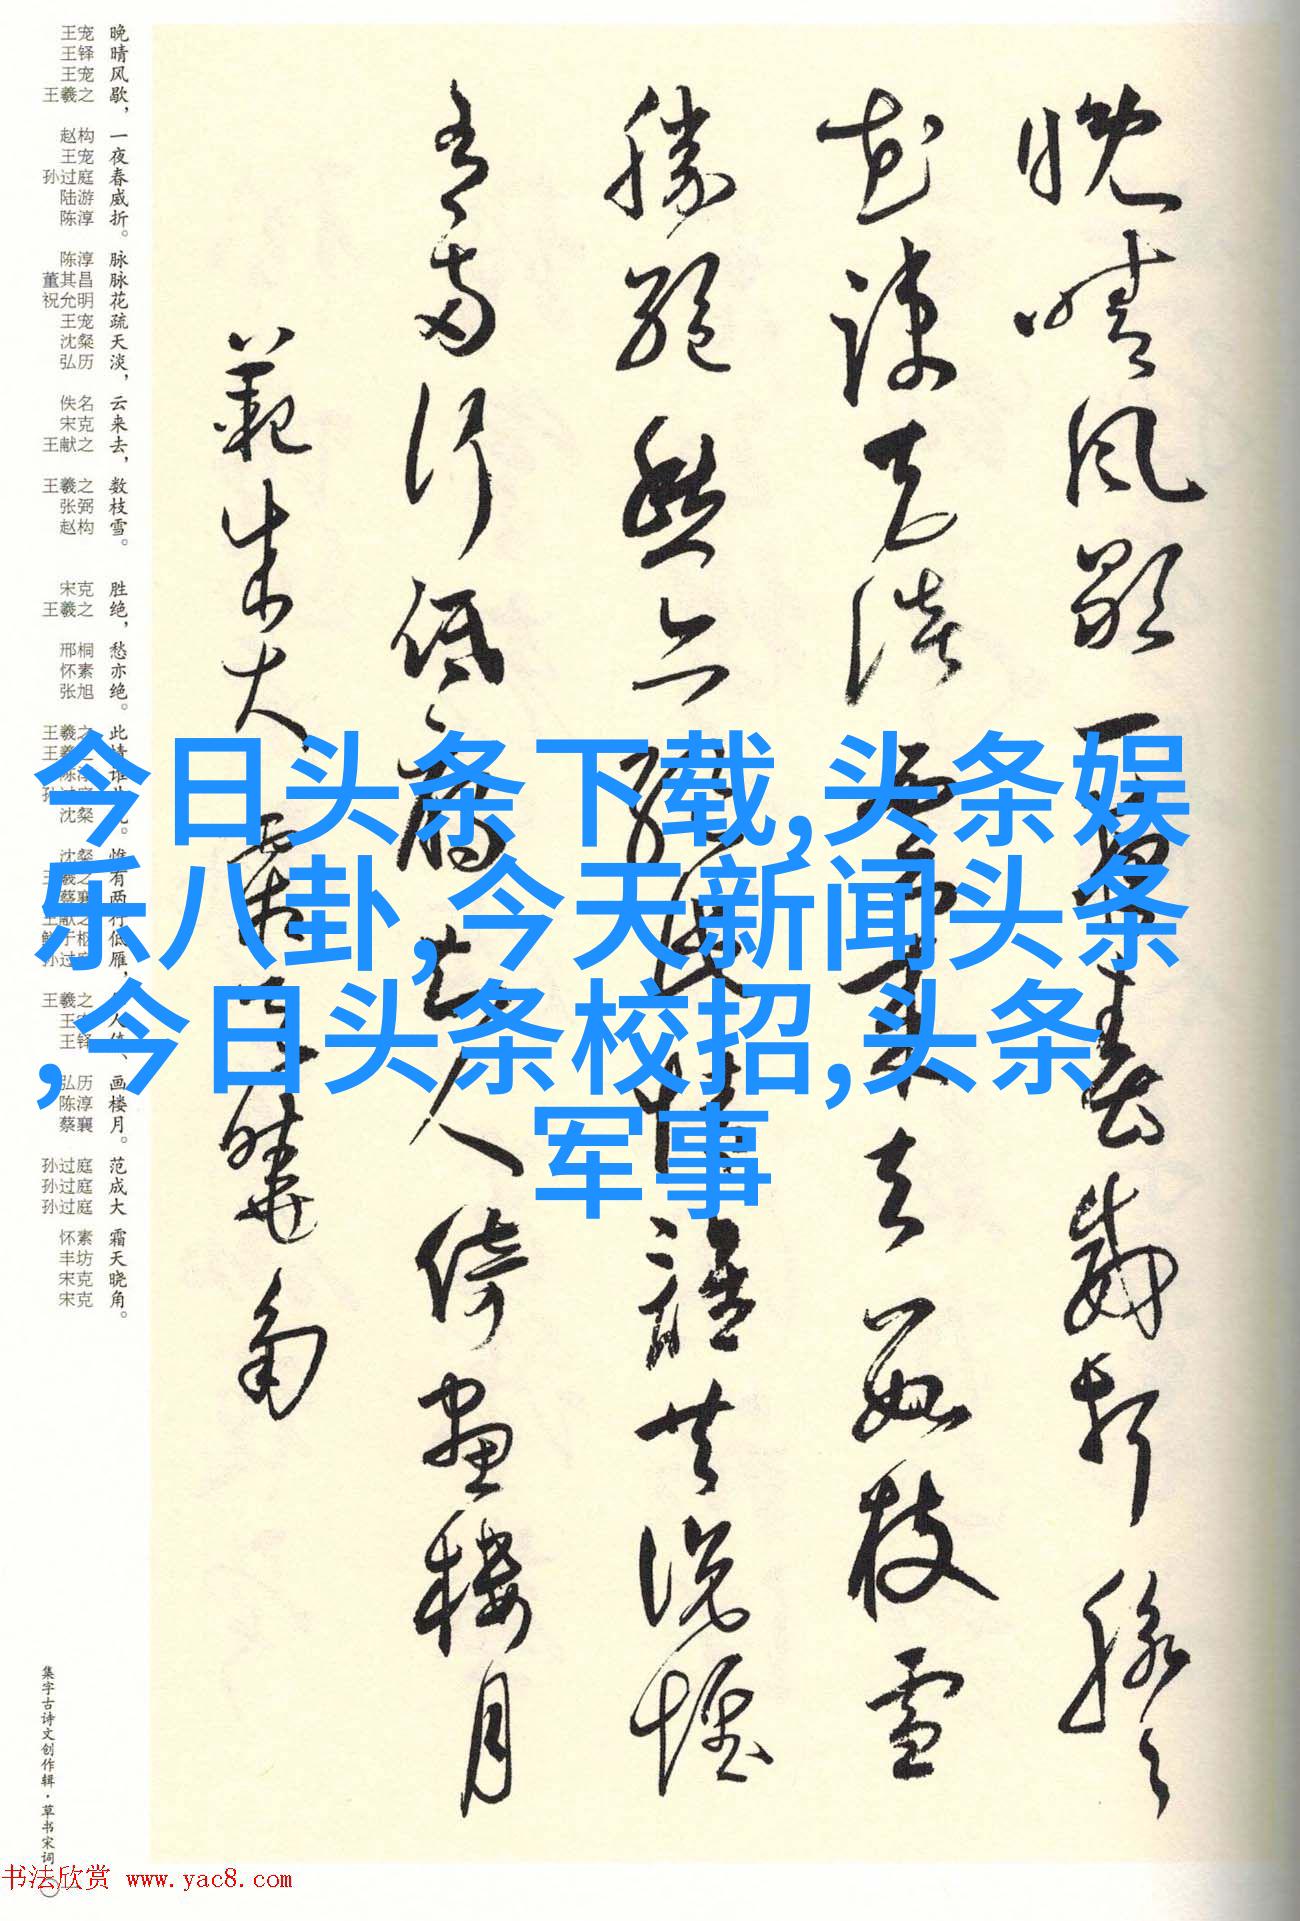 晚晴风歇，
一夜春威折。
脉脉花疏天淡，
云来去，
数枝雪。
胜绝，
愁亦绝。
此情谁共说。
惟有两行低雁，
人倚、
画楼月。
范成大
霜天晓角。
王宠
王铎
王宠
王羲之
赵构
王宠
孙过庭
陆游
陈淳
陈淳
董其昌
祝允明
王宠
沈粲
弘历
佚名
宋克
王献之
王羲之
张弼
赵构
宋克
王羲之
邢桐
怀素
张旭
王羲之
沈粲
王羲之
王铎
弘历
陈淳
蔡襄
孙过庭
孙过庭
孙过庭
怀素
丰坊
宋克
宋克
晚晴风歇一夜春威折脉々
花疏天淡云来去数枝雪
胜绝愁亦绝此情谁共说惟
有两行低雁知人倚画楼月
范成大霜天晓角
今日头条下载,头条娱
乐八卦,今天新闻头条
,今日头条校招,头条
军事
集字古诗文创作辑·草书宋词
书法欣赏 www.yac8.com